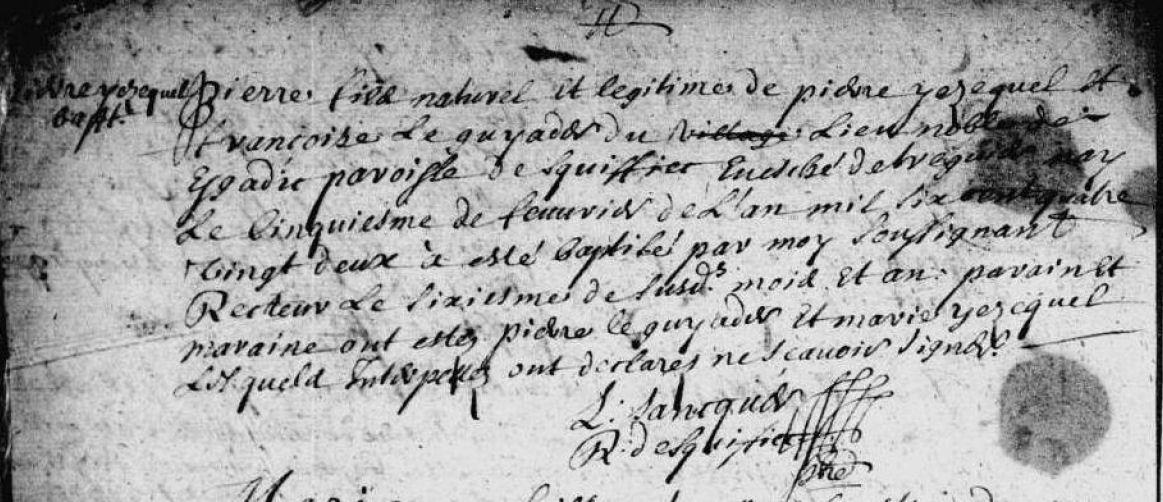 Pierre yezequel
bapt.
Pierre fils naturel et legitime de pierre yezequel et
francoise Le guyader du village Lieu noble de
paroisse de Squiffiec Evesché de treguier nay
Le Cinquiesme de feuvrier de L'an mil six cent quatre
vingt deux à esté baptisé par moy soussignant
Recteur Le sixiesme de susd.s mois et an. parain et
maraine ont estes pierre le guyader et marie yezequel
Lesquels Interpelles ont declares ne scavoir signer
L: Jancquer
R. de Squifiec